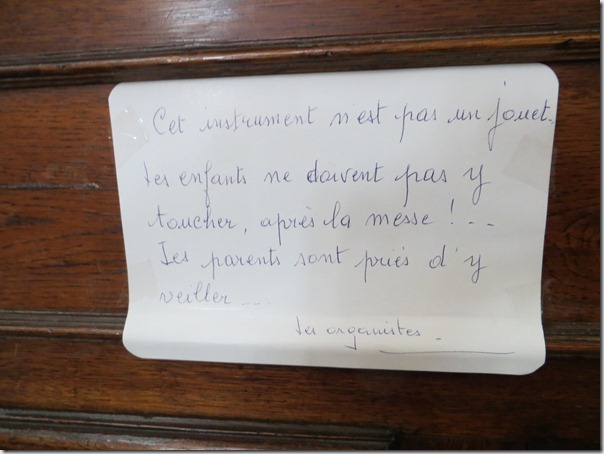 Cet instrument n'est pas un jouet.
Les enfants ne doivent pas y
toucher, après la messe !...
Les parents sont priés d'y
veiller....
Les organistes.